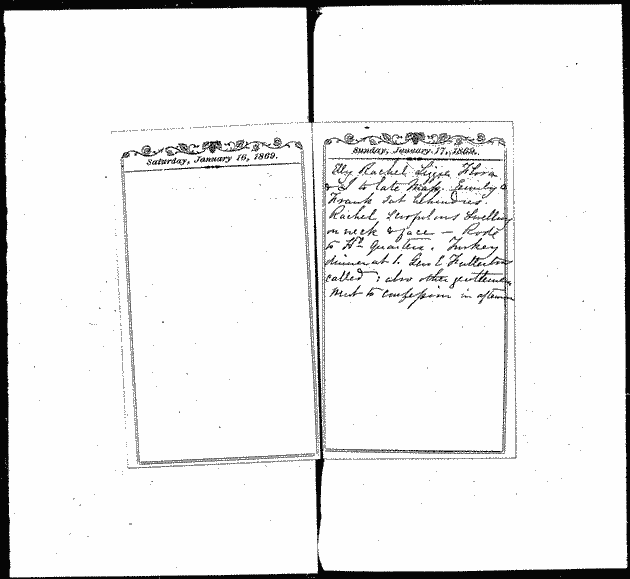 Saturday, January 16, 1869.
Sunday, January 17, 1869.
Rachel Lizzie Flora
& I to late Mass. Emily &
Frank sat behind us.
Rachel, scrofulous swelling
on neck & face — Rode
to Hd. Quarters. Turkey
dinner at 1. Genl Fullerton
called; also other gentlemen
Went to confession in afternoon